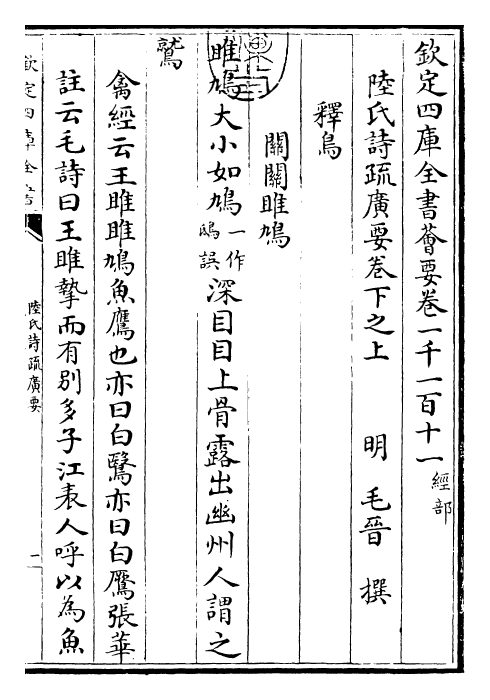 欽定四庫全書薈要卷一千一百十一經部
陸氏詩疏廣要卷下之上　　明　毛晉　撰
釋鳥
關關雎鳩
雎鳩大小如鳩一作鴟誤深目目上骨露出幽州人謂之
鷲
禽經云王雎雎鳩魚鷹也亦曰白鷖亦曰白鴈張華
註云毛詩曰王雎摯而有別多子江表人呼以為魚
欽定四庫全書
陸氏詩疏廣要
一